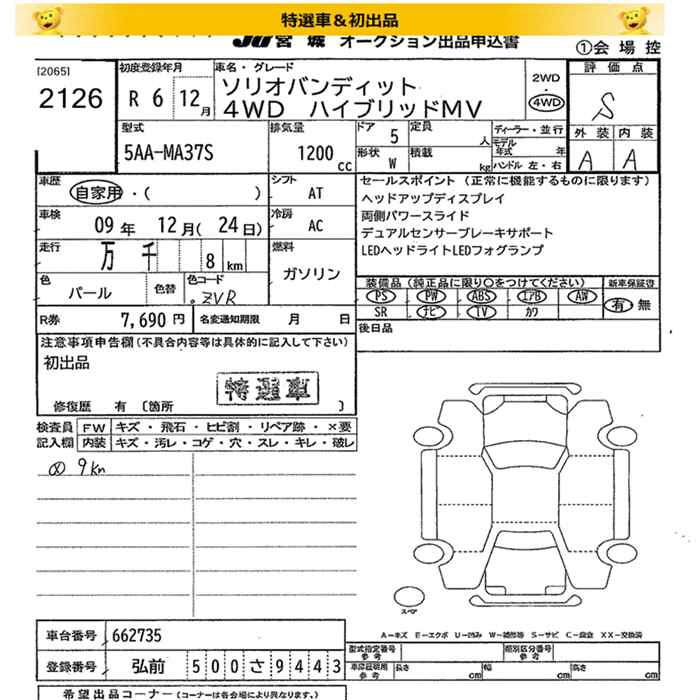 特選車&初出品
JU宮城 オークション出品申込書
①会場控
[2065]
2126
初度登録年月
R 6 12月
車名・グレード
ソリオバンディット
4WD ハイブリッドMV
2WD
4WD
評価点
S
外装 内装
A A
型式
5AA-MA37S
排気量
1200 cc
ドア 5
定員 人
形状 W
積載 kg
ディーラー・並行
モデル年式 年
ハンドル 左・右
車歴
自家用・( )
シフト
AT
車検
09年 12月(24日)
冷房
AC
走行
万 千 8 km
燃料
ガソリン
色
パール
色替
色コード
ZVR
R券 7,690円
名変通知期限 月 日
セールスポイント (正常に機能するものに限ります)
ヘッドアップディスプレイ
両側パワースライド
デュアルセンサーブレーキサポート
LEDヘッドライトLEDフォグランプ
装備品(純正品に限り○をつけてください)
PS PW ABS エアB AW
SR ナビ TV カワ
新車保証書
有 無
後日品
注意事項申告欄(不具合内容等は具体的に記入して下さい)
初出品
特選車
修復歴 有 〔箇所 〕
検査員記入欄
FW キズ・飛石・ヒビ割・リペア跡・×要
内装 キズ・汚レ・コゲ・穴・スレ・キレ・破レ
9km
スペア
A-キズ E-エクボ U-凹み W-補修等 S-サビ C-腐食 XX-交換済
車台番号 662735
登録番号 弘前 500さ9443
型式指定番号 参考
類別区分番号 参考
車庫証明用 参考
長さ cm 幅 cm 高さ cm
希望出品コーナー(コーナーは各会場により異なります。)